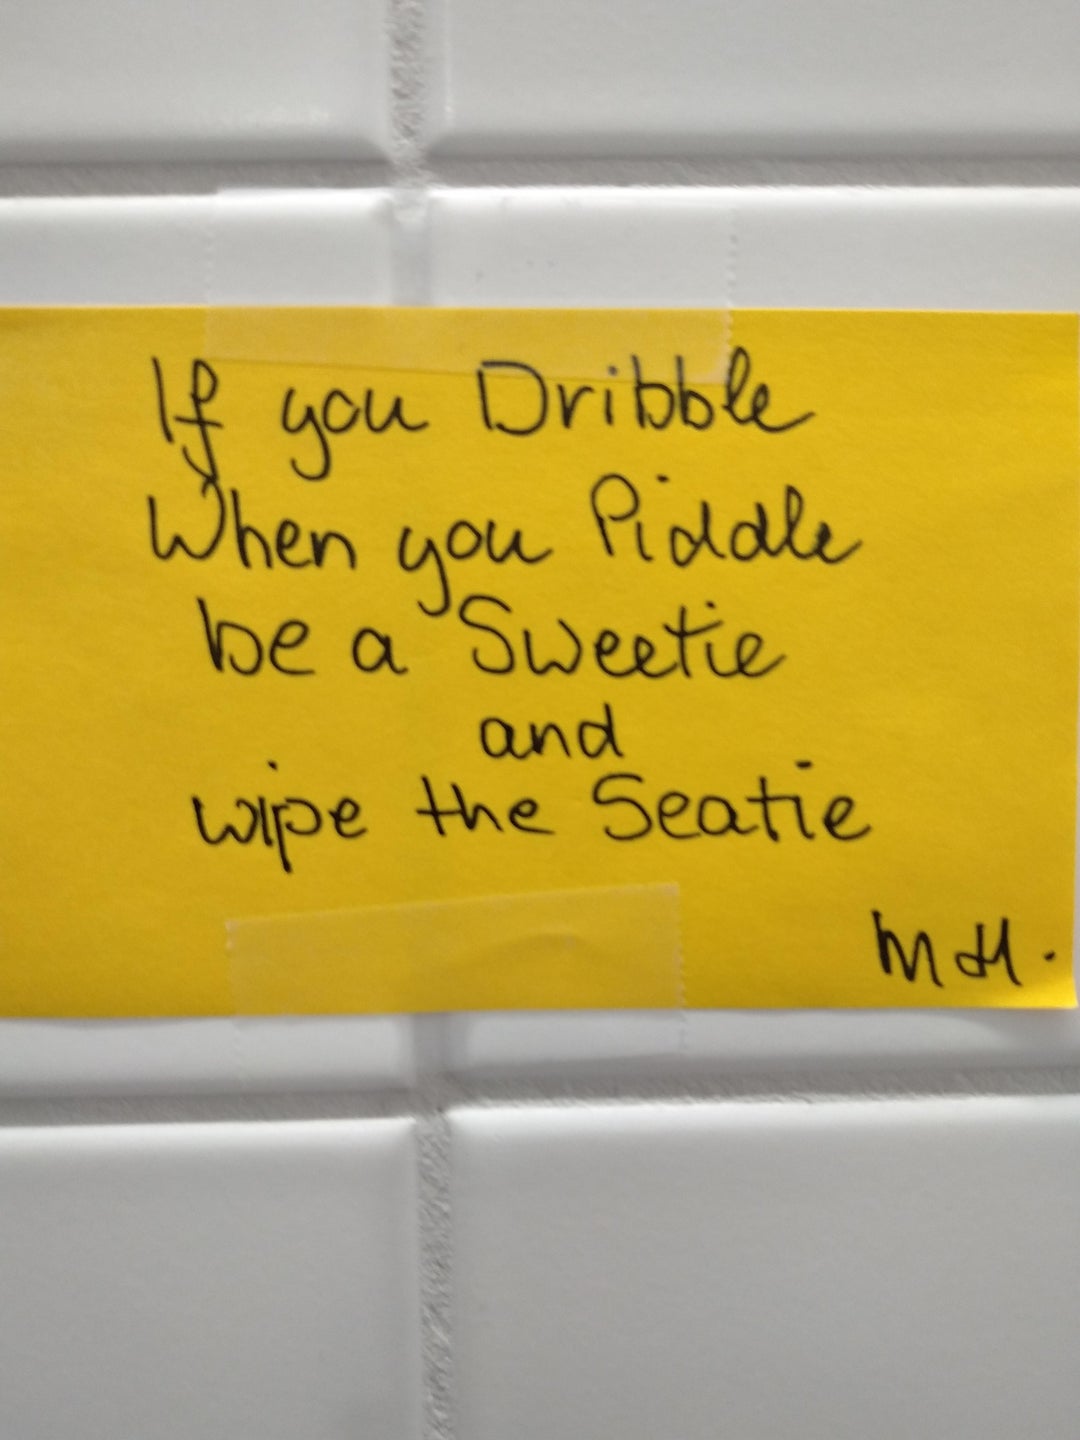 If you Dribble
When you Piddle
be a Sweetie
and
wipe the Seatie
MH.